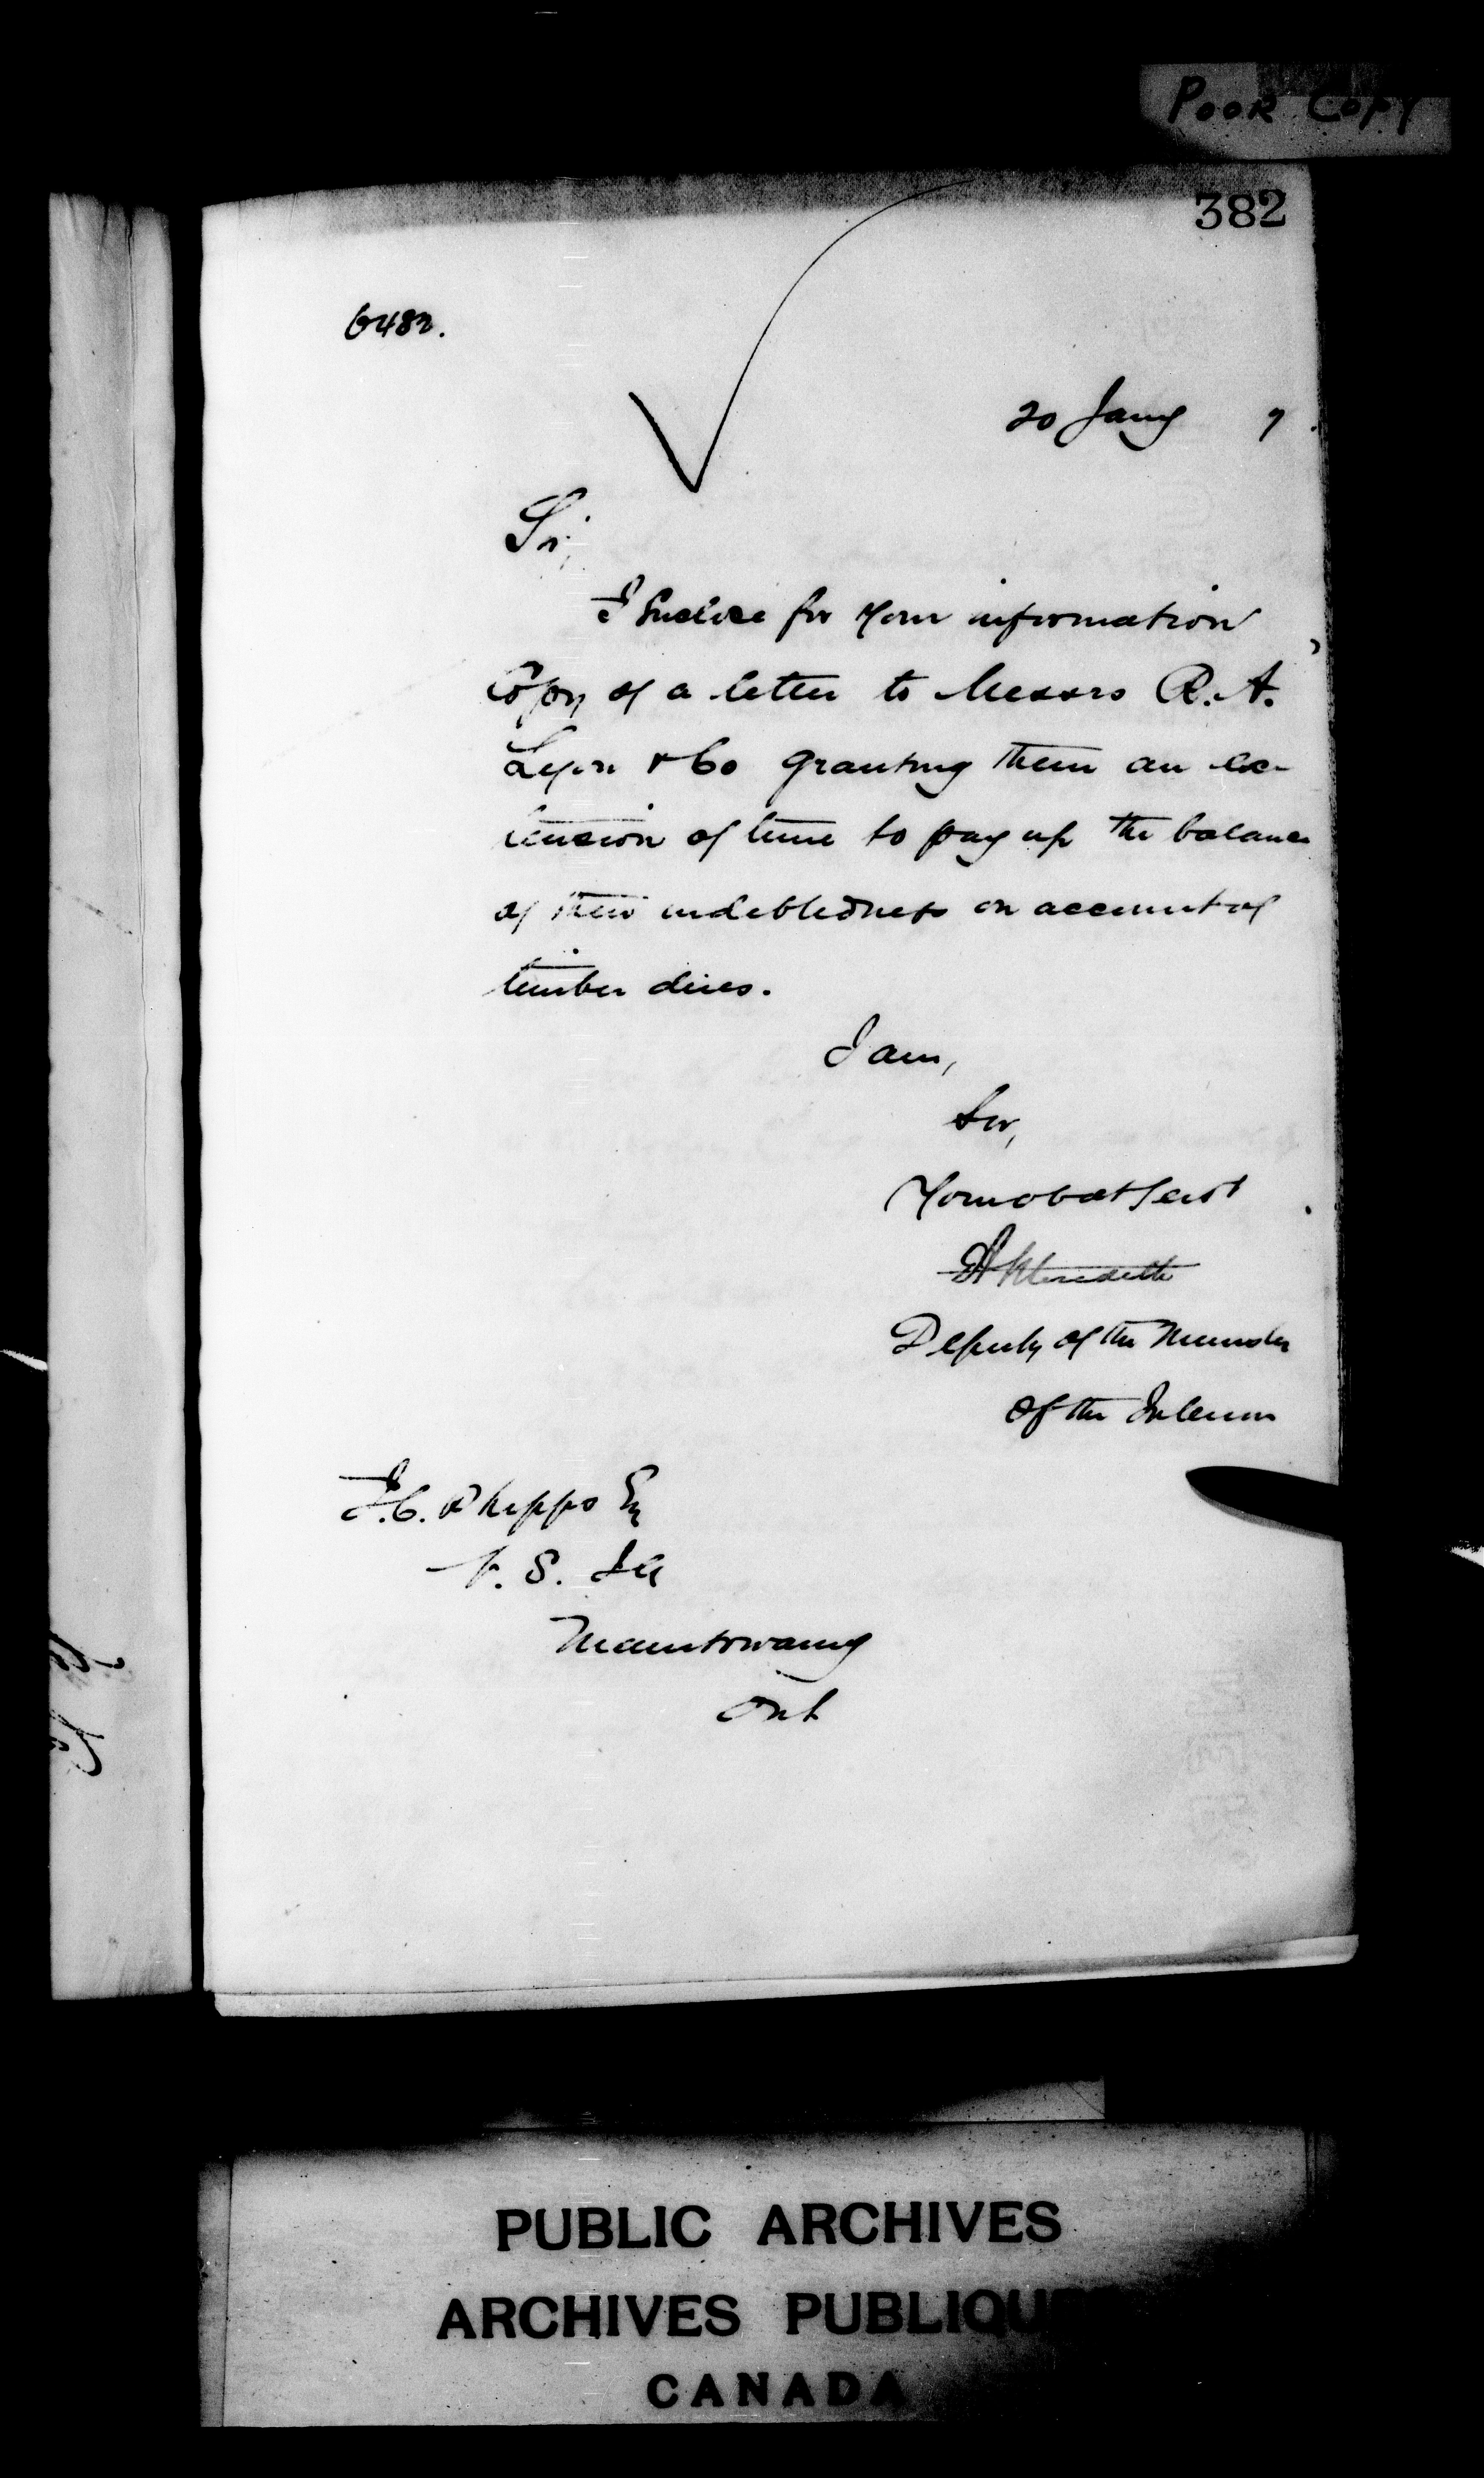 POOR COPY
382
6482.
20 Jany 7
Sir,
I Enclose for your information
Copy of a letter to Messrs R. A.
Lyon & Co granting them an ex-
tension of time to pay up the balance
of their indebtedness on account of
timber dues.
I am,
Sir,
Your obdt Servt
EA Meredith
Deputy of the Minister
of the Interior
J.C. Phipps Esq
V. S. I A
Manitowaning
Ont
PUBLIC ARCHIVES
ARCHIVES PUBLIQU
CANADA